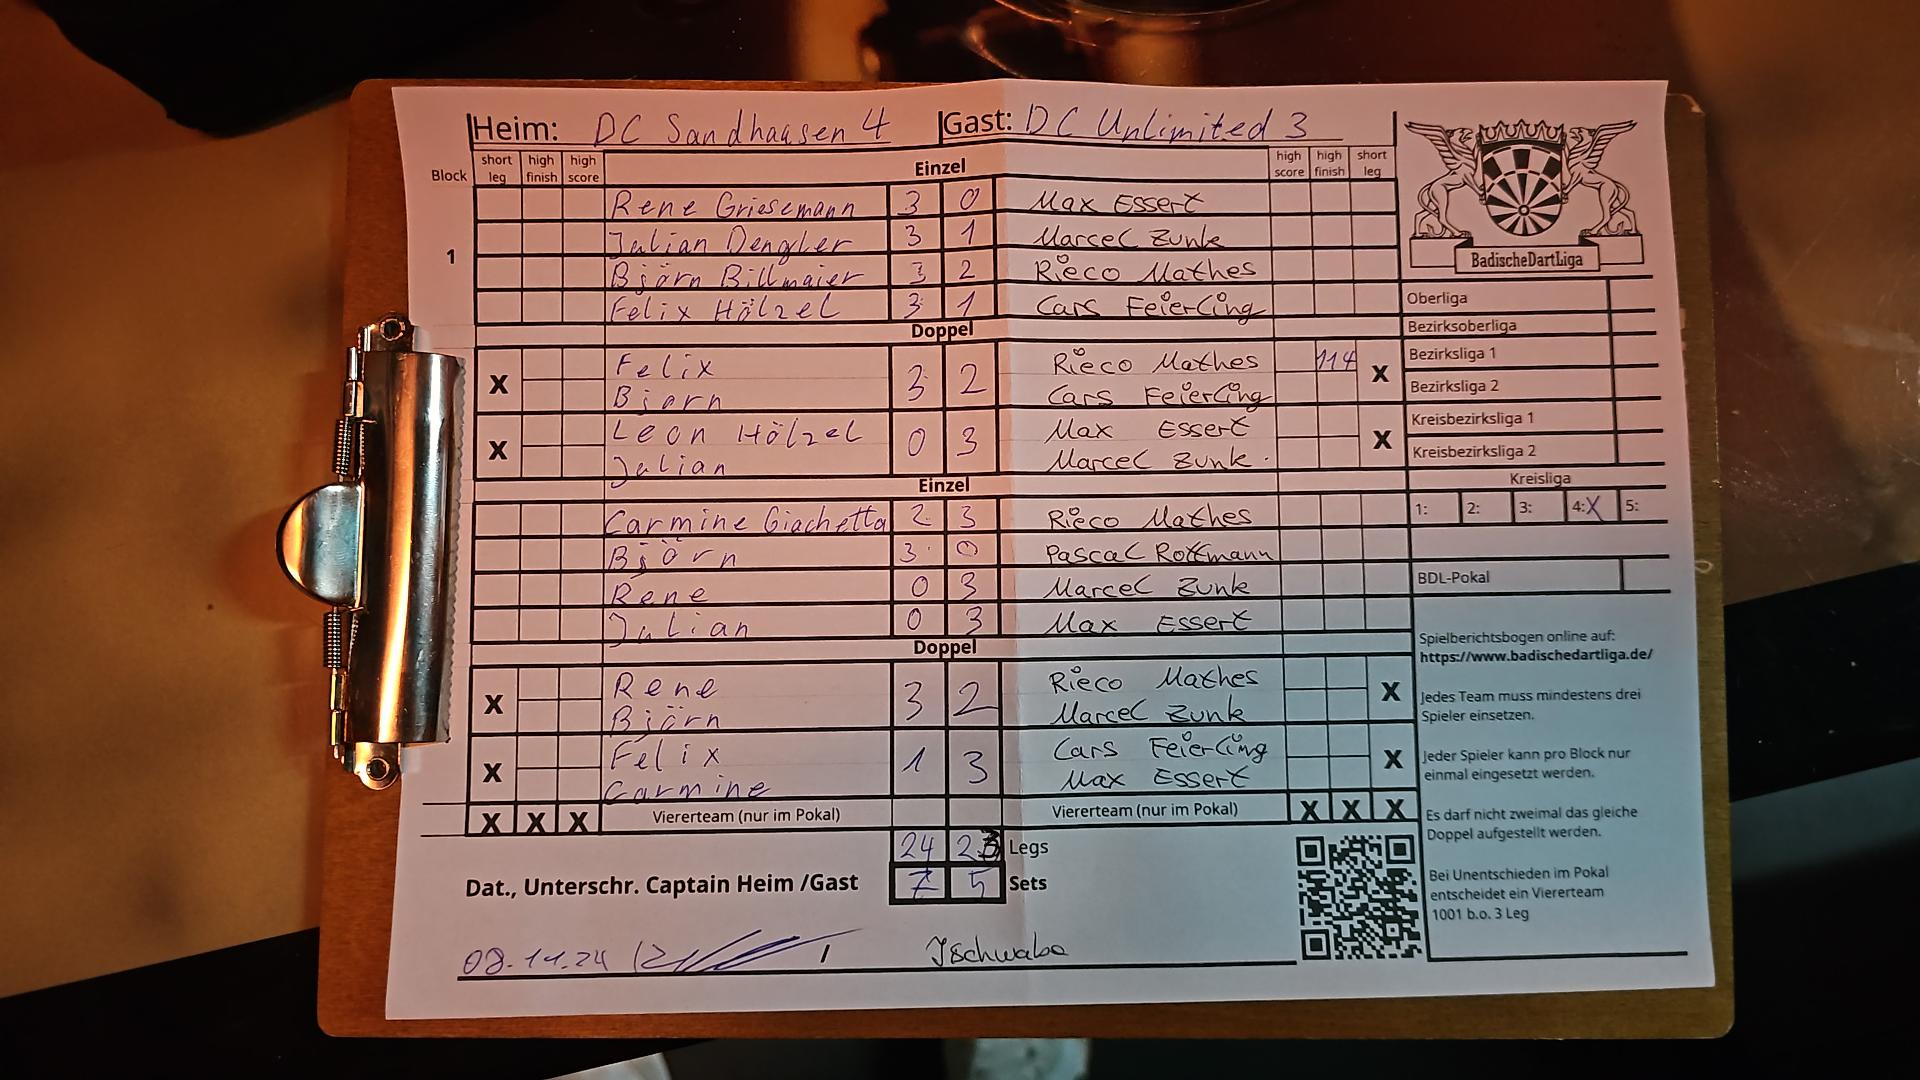 Heim: DC Sandhausen 4 Gast: DC Unlimited 3
Block short leg high finish high score Einzel high score high finish short leg
Rene Griesemann 3 0 Max Essert
Julian Dengler 3 1 Marcel Zunk
1
Björn Billmaier 3 2 Rieco Mathes
Felix Hölzel 3 1 Lars Feierling
Doppel
X Felix 3 2 Rieco Mathes 114 X
Bjorn Lars Feierling
X Leon Hölzel 0 3 Max Essert X
Julian Marcel Zunk
Einzel
Carmine Giachetta 2 3 Rieco Mathes
Björn 3 0 Pascal Rottmann
Rene 0 3 Marcel Zunk
Julian 0 3 Max Essert
Doppel
X Rene 3 2 Rieco Mathes X
Björn Marcel Zunk
X Felix 1 3 Lars Feierling X
Carmine Max Essert
X X X Viererteam (nur im Pokal) Viererteam (nur im Pokal) X X X
24 23 Legs
Dat., Unterschr. Captain Heim /Gast 7 5 Sets
08.11.24 / JSchwabe
BadischeDartLiga
Oberliga
Bezirksoberliga
Bezirksliga 1
Bezirksliga 2
Kreisbezirksliga 1
Kreisbezirksliga 2
Kreisliga
1: 2: 3: 4:X 5:
BDL-Pokal
Spielberichtsbogen online auf:
https://www.badischedartliga.de/
Jedes Team muss mindestens drei
Spieler einsetzen.
Jeder Spieler kann pro Block nur
einmal eingesetzt werden.
Es darf nicht zweimal das gleiche
Doppel aufgestellt werden.
Bei Unentschieden im Pokal
entscheidet ein Viererteam
1001 b.o. 3 Leg